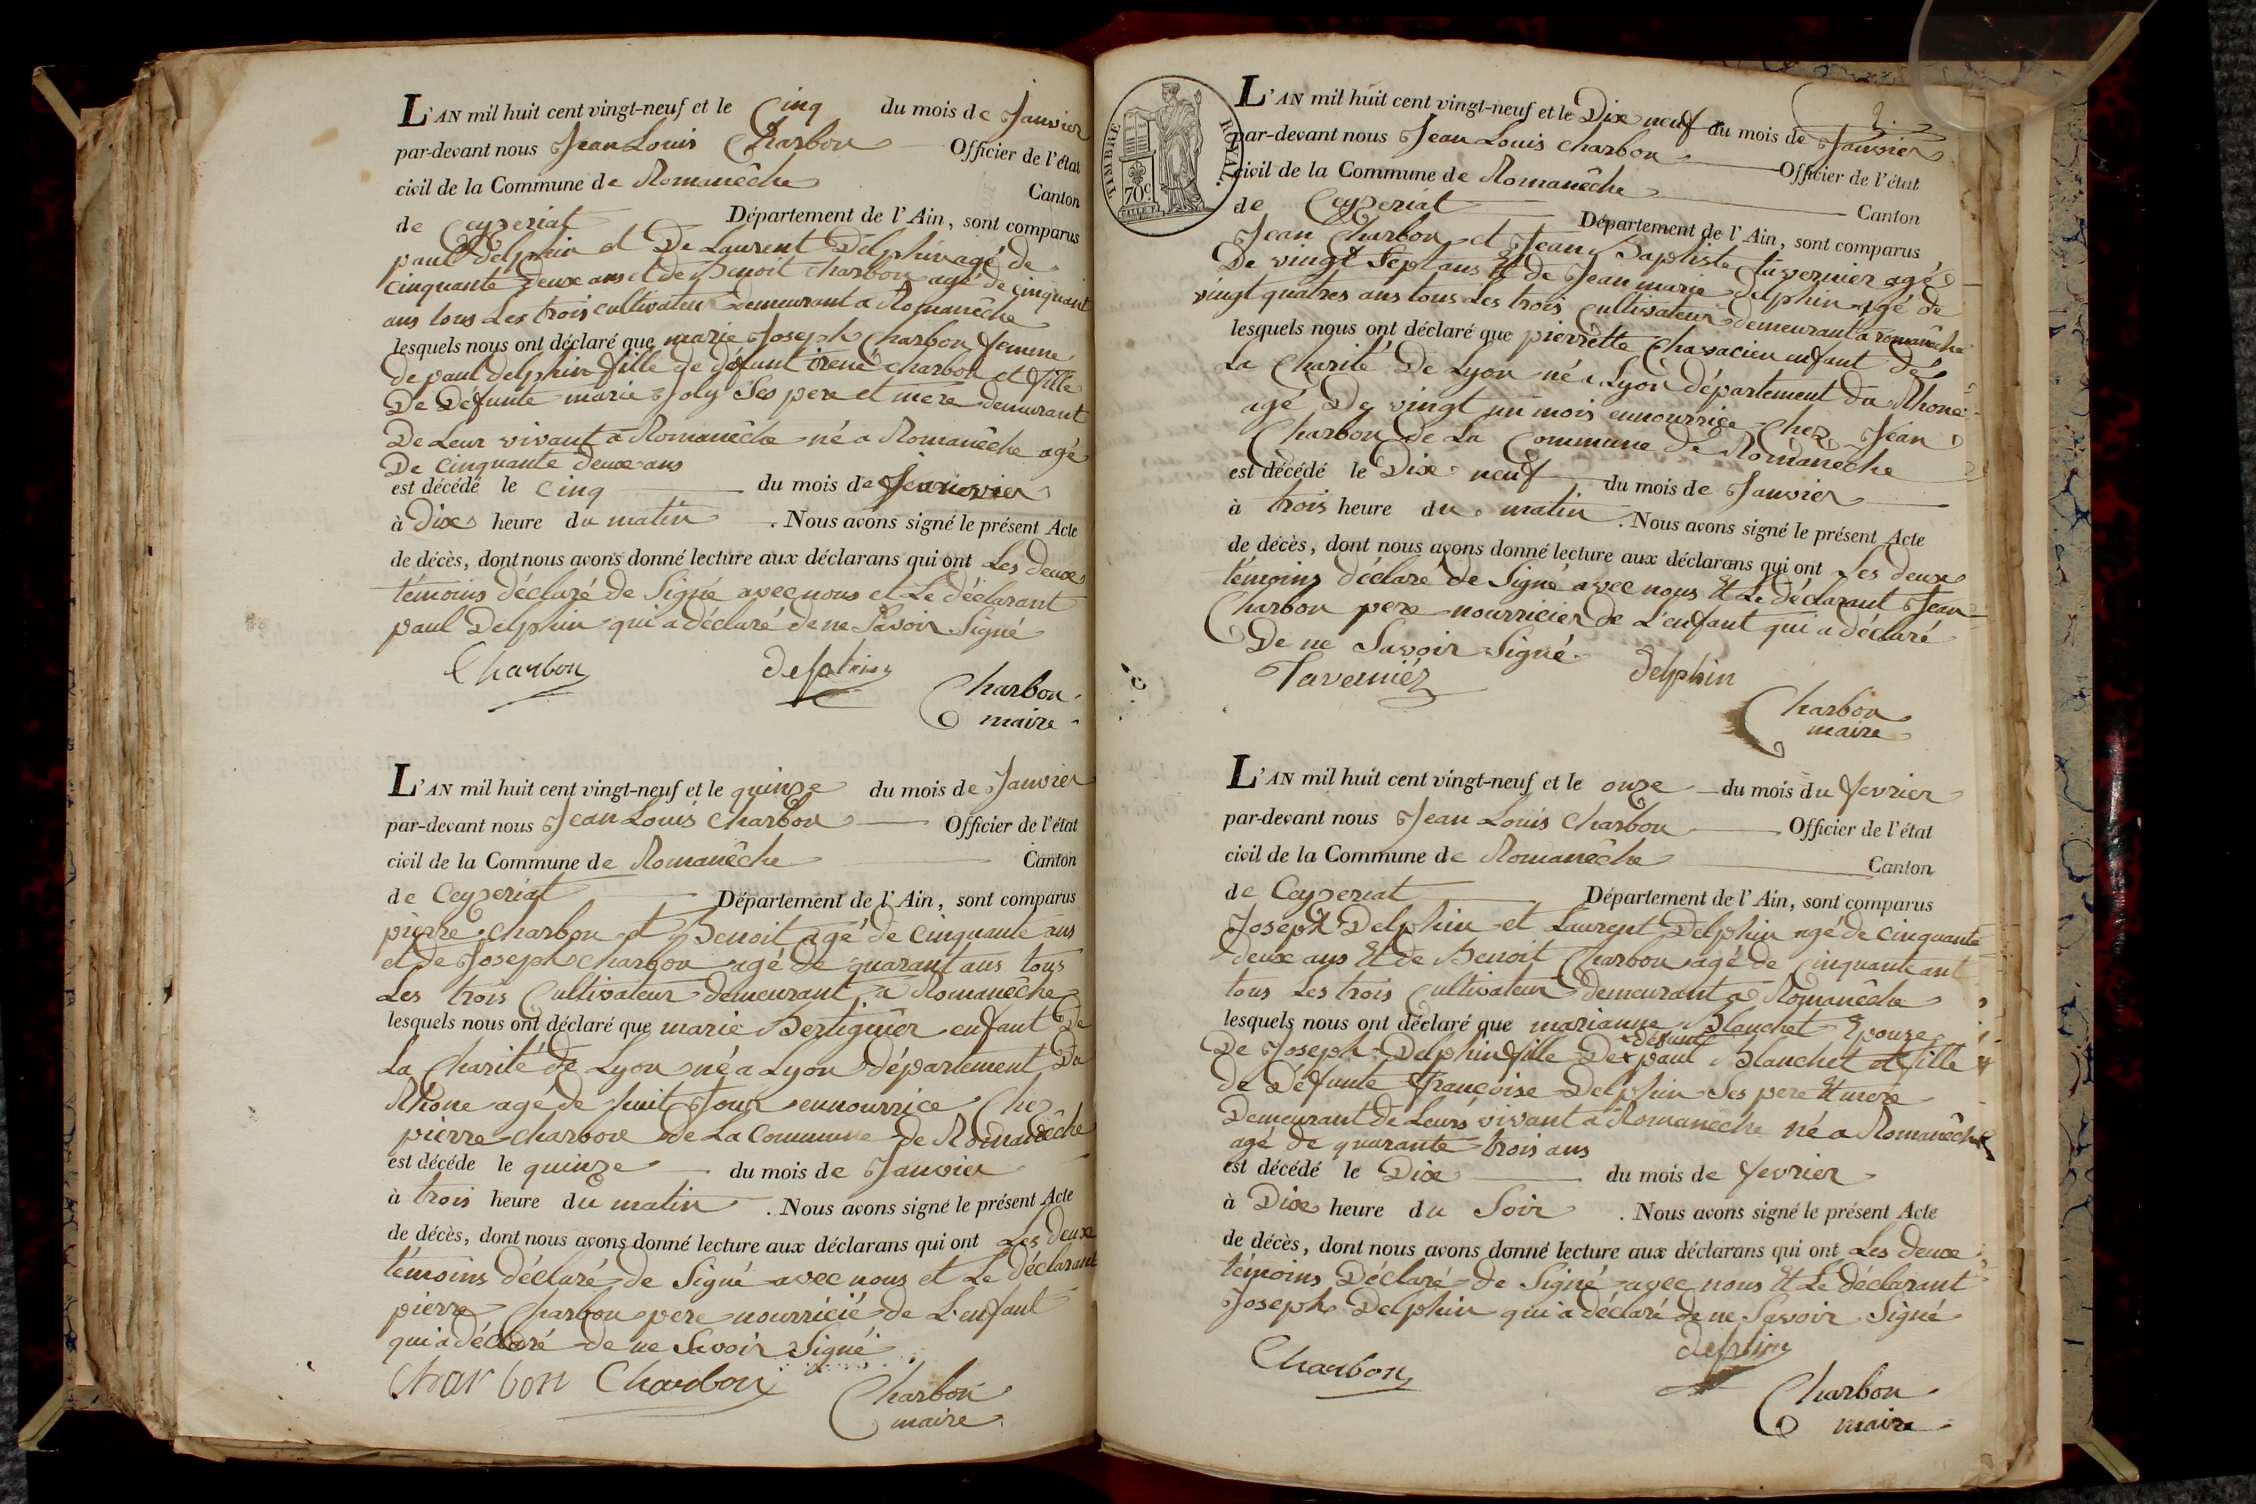 L'AN mil huit cent vingt-neuf et le Cinq du mois de Janvier
par-devant nous Jean Louis Charbon Officier de l'état
civil de la Commune de Romanêche Canton
de Ceyzeriat Département de l'Ain, sont comparus
paul Delphin et De Laurent Delphin agé de
cinquante deux ans et de Benoit Charbon agé de cinquant
ans tous Les trois cultivateur demeurant a Romanêche
lesquels nous ont déclaré que marie Joseph Charbon femme
de paul delphin fille de défunt irené charbon et fille
De Défunte marie Joly Ses pere et mere demeurant
De Leur vivant a Romanêche né a Romanêche agé
De cinquante deux ans
est décédé le cinq du mois de Janvier
à Dix heure du matin . Nous avons signé le présent Acte
de décès, dont nous avons donné lecture aux déclarans qui ont Les deux
témoins déclaré de Signé avec nous et Le déclarant
paul Delphin qui a déclaré de ne Savoir Signé
Charbon delphin
Charbon
maire
L'AN mil huit cent vingt-neuf et le quinze du mois de Janvier
par-devant nous Jean Louis Charbon Officier de l'état
civil de la Commune de Romanêche Canton
de Ceyzeriat Département de l'Ain, sont comparus
pierre charbon et Benoit agé de cinquante ans
et de Joseph charbon agé de quarant ans tous
Les trois Cultivateur demeurant a Romanêche
lesquels nous ont déclaré que marie enfant De
La Charité de Lyon né a Lyon département Du
Rhône agé de huit Jour ennourrice Chez
pierre charbon de La Commune de Romanêche
est décéde le quinze du mois de Janvier
à trois heure du matin . Nous avons signé le présent Acte
de décès, dont nous avons donné lecture aux déclarans qui ont Les deux
témoins déclaré de Signé avec nous et Le déclarant
pierre Charbon pere nourricié de L'enfant
qui a déclaré de ne Savoir Signé
Charbon Charbon
Charbon
maire
2.
TIMBRE ROYAL.
70c
L'AN mil huit cent vingt-neuf et le Dix neuf du mois de Janvier
par-devant nous Jean Louis Charbon Officier de l'état
civil de la Commune de Romanêche Canton
de Ceyzeriat Département de l'Ain, sont comparus
Jean Charbon et Jean Baptiste tavernier agé
De vingt Sept ans Et de Jean marie delphin agé de
vingt quatres ans tous Les trois Cultivateur demeurant a romanêche
lesquels nous ont déclaré que pierrette Chavacieu enfant dé
La Charité De Lyon né a Lyon département du Rhone
agé De vingt un mois ennourrice chez Jean
Charbon de La Commune de Romanêche
est décédé le Dix neuf du mois de Janvier
à trois heure du matin . Nous avons signé le présent Acte
de décès, dont nous avons donné lecture aux déclarans qui ont Les deux
témoins déclaré de Signé avec nous Et Le déclarant Jean
Charbon pere nourricier de L'enfant qui a déclaré
De ne Savoir Signé
Taverniér delphin
Charbon
maire
L'AN mil huit cent vingt-neuf et le onze du mois du fevrier
par-devant nous Jean Louis Charbon Officier de l'état
civil de la Commune de Romanêche Canton
de Ceyzeriat Département de l'Ain, sont comparus
Joseph Delphin et Laurent Delphin agé de cinquante
deux ans Et de Benoit Charbon agé de cinquante ant
tous Les trois Cultivateur demeurant a Romanêche
lesquels nous ont déclaré que marianne Blanchet Epouze
défunt
De Joseph Delphin fille De paul Blanchet et fille
de Défunte françoise Delphin Ses pere Et mere
Demeurant de Leurs vivant a Romanêche né a Romanêche
agé de quarante trois ans
est décédé le Dix du mois de fevrier
à Dix heure du Soir . Nous avons signé le présent Acte
de décès, dont nous avons donné lecture aux déclarans qui ont Les deux
témoins Déclaré de Signé avec nous Et Le déclarant
Joseph Delphin qui a déclaré de ne Savoir Signé
Charbon delphin
Charbon
maire